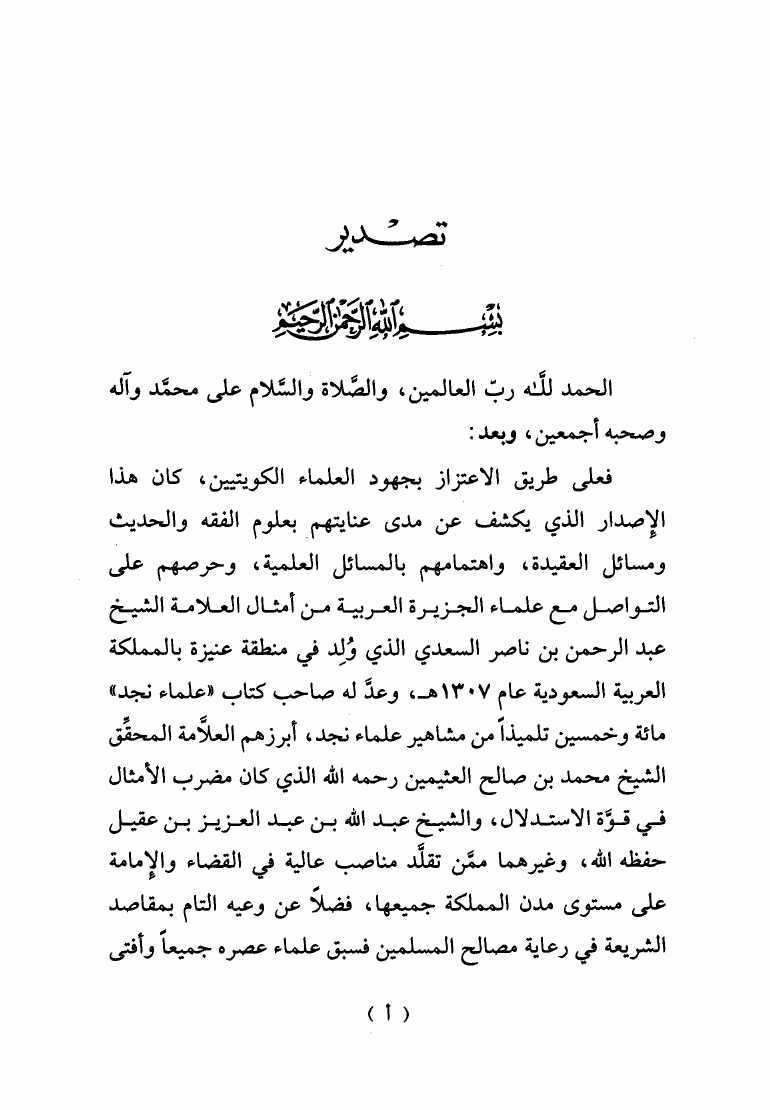 تصدير
بسم الله الرحمن الرحيم
الحمد للَّه ربّ العالمين، والصَّلاة والسَّلام على محمَّد وآله
وصحبه أجمعين، وبعد:
فعلى طريق الاعتزاز بجهود العلماء الكويتيين، كان هذا
الإصدار الذي يكشف عن مدى عنايتهم بعلوم الفقه والحديث
ومسائل العقيدة، واهتمامهم بالمسائل العلمية، وحرصهم على
التواصل مع علماء الجزيرة العربية من أمثال العلامة الشيخ
عبد الرحمن بن ناصر السعدي الذي وُلِد في منطقة عنيزة بالمملكة
العربية السعودية عام ١٣٠٧هـ، وعدَّ له صاحب كتاب «علماء نجد»
مائة وخمسين تلميذاً من مشاهير علماء نجد، أبرزهم العلاَّمة المحقِّق
الشيخ محمد بن صالح العثيمين رحمه الله الذي كان مضرب الأمثال
في قوَّة الاستدلال، والشيخ عبد الله بن عبد العزيز بن عقيل
حفظه الله، وغيرهما ممَّن تقلَّد مناصب عالية في القضاء والإمامة
على مستوى مدن المملكة جميعها، فضلاً عن وعيه التام بمقاصد
الشريعة في رعاية مصالح المسلمين فسبق علماء عصره جميعاً وأفتى
( أ )